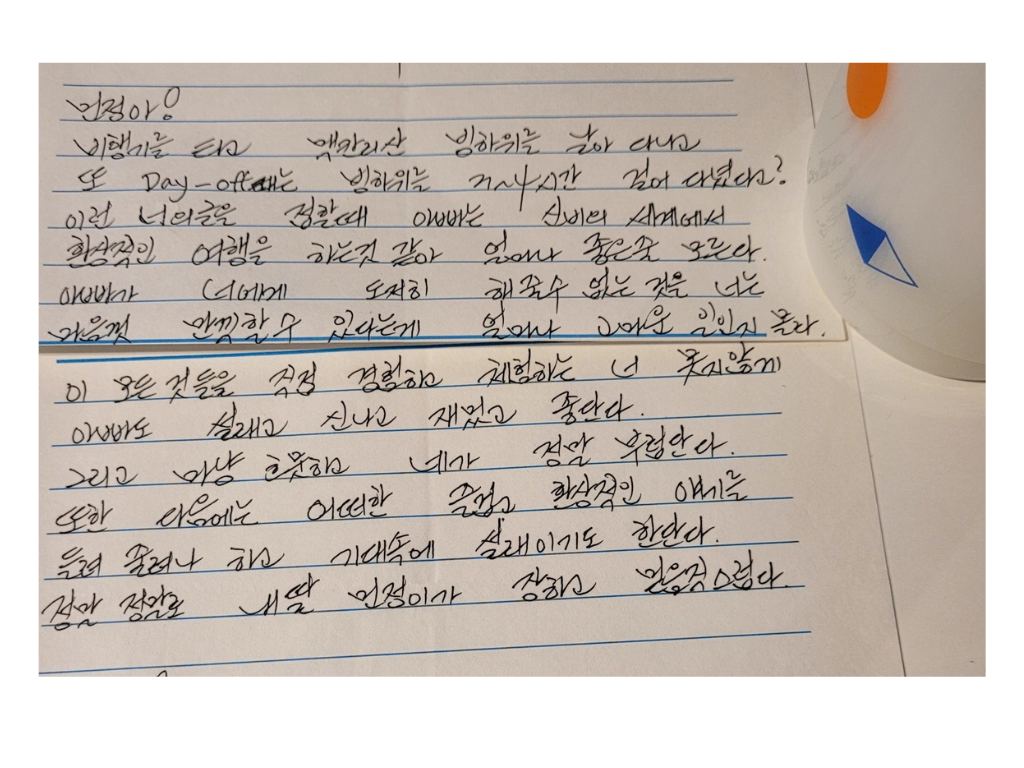 민정아!
비행기를 타고 맥칸리산 빙하위를 날아 다니고
또 Day-off때는 빙하위를 3~4시간 걸어 다녔다고?
이런 너의글을 접할때 아빠는 신비의 세계에서
환상적인 여행을 하는것 같아 얼마나 좋은줄 모른다.
아빠가 너에게 도저히 해줄수 없는 것을 너는
마음껏 만끽할수 있다는게 얼마나 고마운 일인지 몰라.
이 모든 것들을 직접 경험하고 체험하는 너 못지않게
아빠도 설레고 신나고 재밌고 좋단다.
그리고 마냥 흐뭇하고 네가 정말 부럽단다.
또한 다음에는 어떠한 즐겁고 환상적인 얘기를
들려 줄려나 하고 기대속에 설래이기도 한단다.
정말 정말로 내딸 민정이가 장하고 믿음직스럽다.